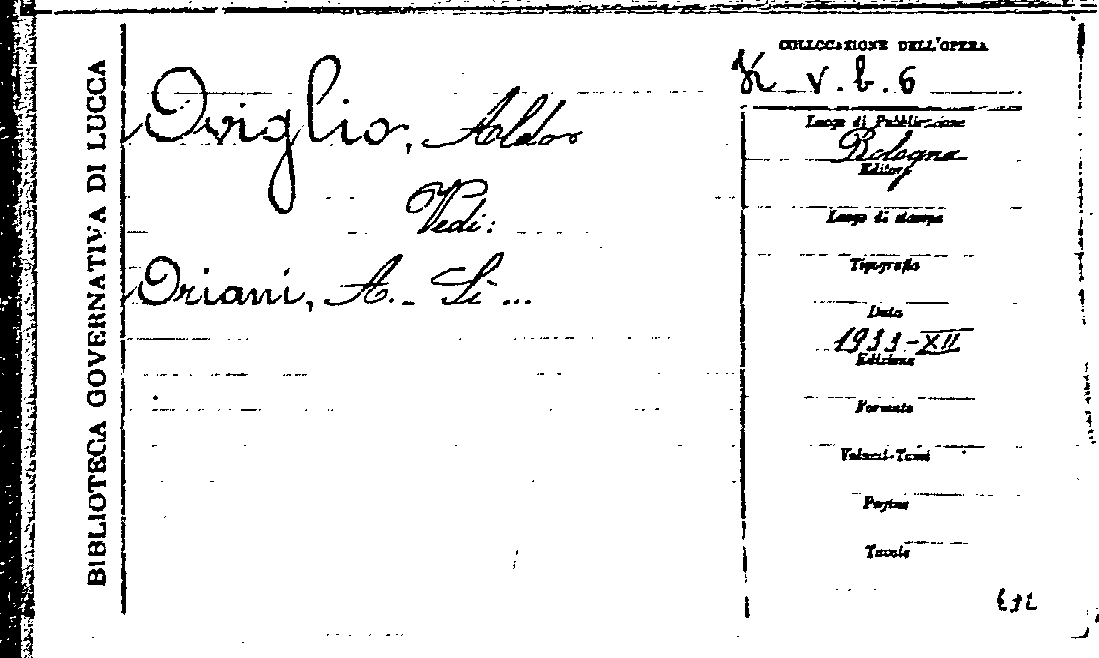 BIBLIOTECA GOVERNATIVA DI LUCCA
Oviglio, Aldo
Vedi:
Oriani, A. - Sì ...
COLLOCAZIONE DELL'OPERA
K V. b. 6
Luogo di Pubblicazione
Bologna
Editore
Luogo di stampa
Tipografia
Data
1933-XII
Edizione
Formato
Volumi-Tomi
Pagine
Tavole